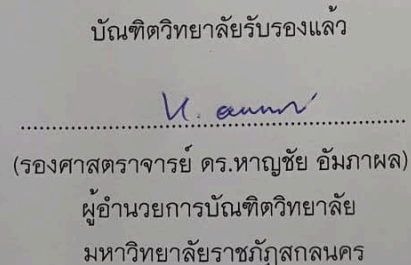 บัณฑิตวิทยาลัยรับรองแล้ว
(รองศาสตราจารย์ ดร.หาญชัย อัมภาผล)
ผู้อำนวยการบัณฑิตวิทยาลัย
มหาวิทยาลัยราชภัฏสกลนคร